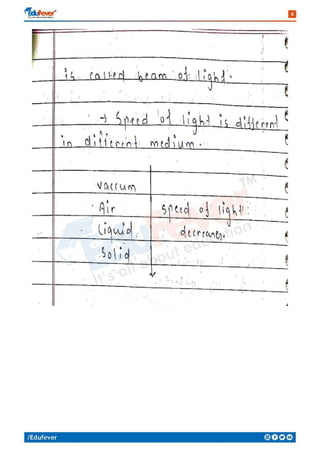 Edufever
4
is called beam of light.
→ Speed of light is different
in different medium.
Vaccum
Air speed of light
Liquid decreases.
Solid
Edufever TM
It's all about education
/Edufever